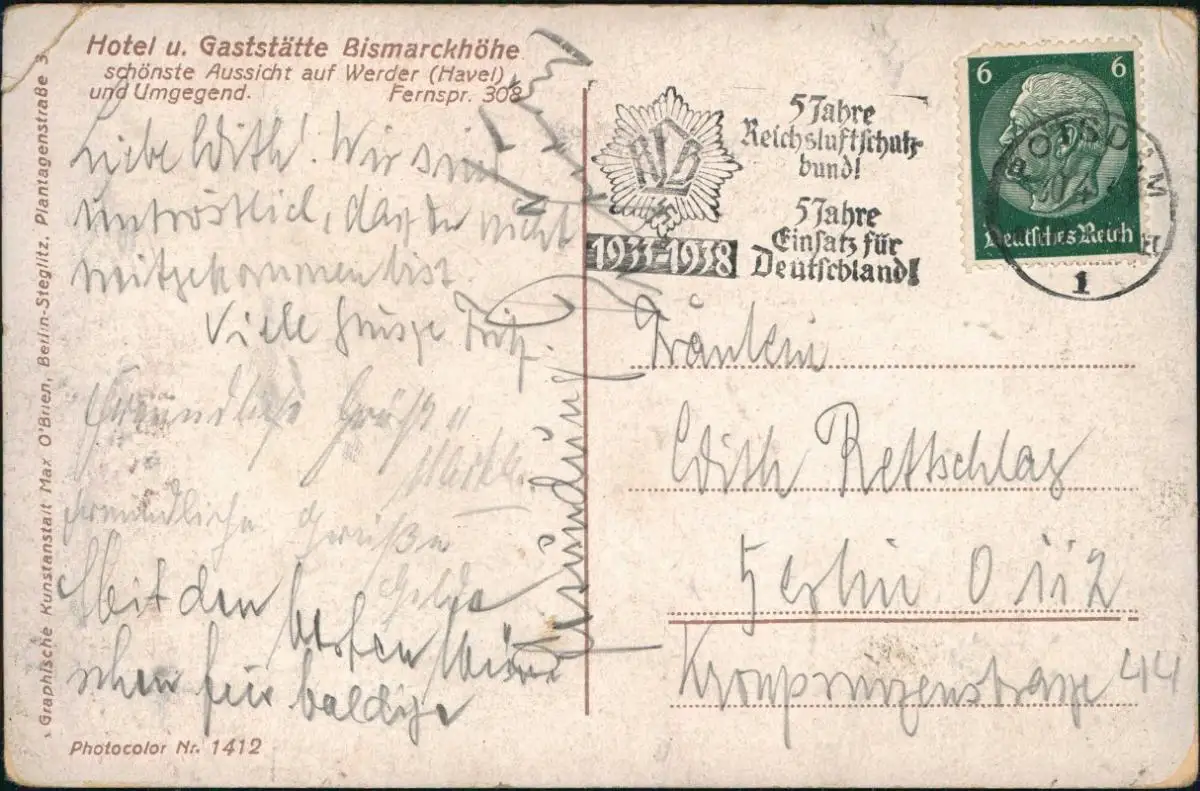 Hotel u. Gaststätte Bismarckhöhe
schönste Aussicht auf Werder (Havel)
und Umgegend. Fernspr. 308
Liebe Edith! Wir sind
untröstlich, daß du nicht
mitgekommen bist.
Viele Grüsse Fritz.
Freundliche Grüße
freundliche Grüße
Mit den besten Wün-
schen für baldige
Gesundung
Graphische Kunstanstalt Max O'Brien, Berlin-Steglitz, Plantagenstraße 3.
Photocolor Nr. 1412
RLB
1933-1938
5 Jahre
Reichsluftschutz-
bund!
5 Jahre
Einsatz für
Deutschland!
6 6
Deutsches Reich
POTSDAM
1
Fräulein
Edith Rettschlag
Berlin O 112
Kronprinzenstraße 44